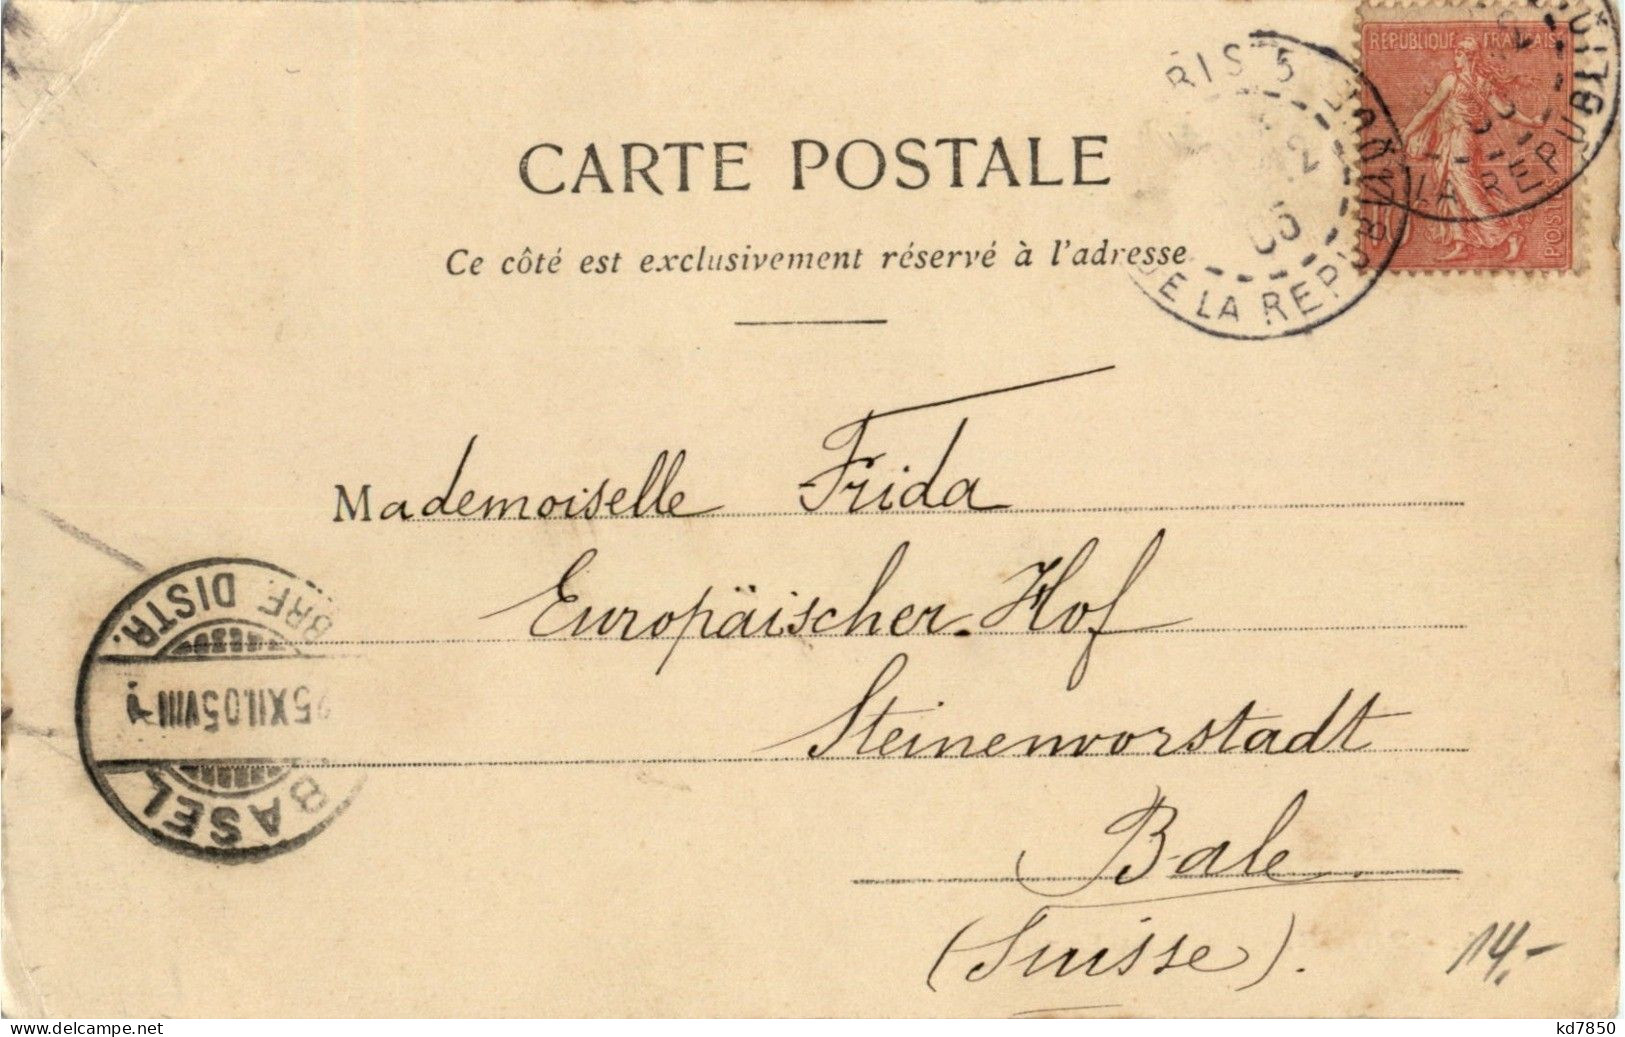 CARTE POSTALE
Ce côté est exclusivement réservé à l'adresse
REPUBLIQUE FRANÇAISE
POSTES
10
RIS 5
12
05
DE LA REP
LA REPUBLIQ
Mademoiselle Frida
Europäischer-Hof
Steinenvorstadt
Bale.
(Suisse).
14.-
BRF. DISTR.
25 XII.05 VIII
BASEL
www.delcampe.net
kd7850